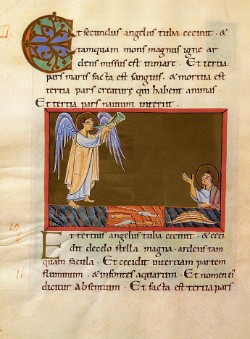 Et secundus angelus tuba cecinit · &
tamquam mons magnus igne ar
dens missus est in mare · Et tertia
pars maris facta est sanguis · & mortua est
tertia pars creaturę quę habent animas
Et tertia pars navium interiit ·
Et tertius angelus tuba cecinit · Et ceci
dit de celo stella magna · ardens tam
quam facula · Et cecidit in tertiam partem
fluminum · & in fontes aquarum · Et nomen ei
dicitur Absentium · Et facta est tertia pars